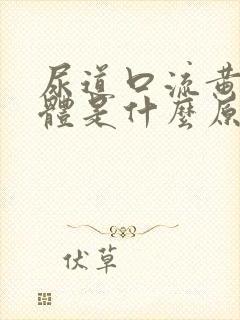 尿道口流黃
體是什麼原
伏草